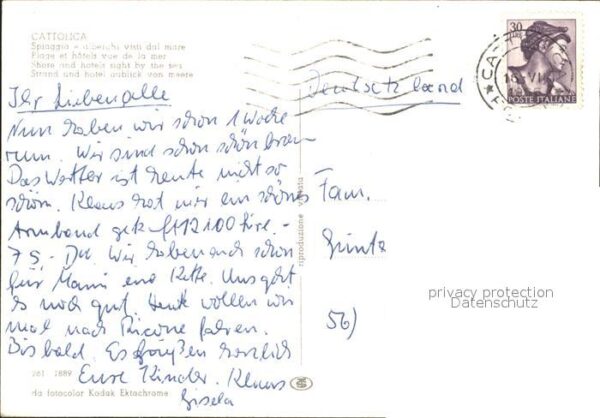 CATTOLICA
Spiaggia e alberghi visti dal mare
Plage et hôtels vue de la mer
Shore and hotels sight by the sea
Strand und hotel aublick von meere
30
POSTE ITALIANE
Deutschland
Ihr Lieben alle
Nun haben wir schon 1 Woche
rum. Wir sind schon schön braun
Das Wetter ist heute nicht so
schön. Klaus hat mir ein schönes
Armband gekauft 12100 Lire. -
75.- DM. Wir haben auch schon
für Mami eine Kette. Uns geht
es noch gut. Heute wollen wir
mal nach Riccone fahren.
Bis bald. Es grüßen herzlich
Eure Kinder. Klaus
Gisela
Fam.
Güntz
56)
riproduzione vietata
privacy protection
Datenschutz
261 1889
da fotocolor Kodak Ektachrome